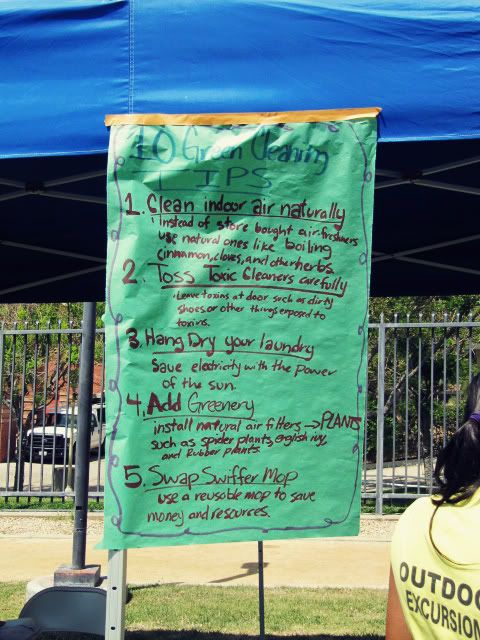 10 Green Cleaning
TIPS
1. Clean indoor air naturally
Instead of store bought air fresheners
use natural ones like boiling
cinnamon, cloves, and other herbs.
2. Toss Toxic Cleaners carefully
Leave toxins at door such as dirty
shoes or other things exposed to
toxins.
3. Hang Dry your laundry
Save electricity with the power
of the sun.
4. Add Greenery
install natural air filters → PLANTS
such as spider plants, english ivy,
and Rubber plants.
5. Swap Swiffer Mop
use a reusable mop to save
money and resources.
OUTDO
EXCURSION